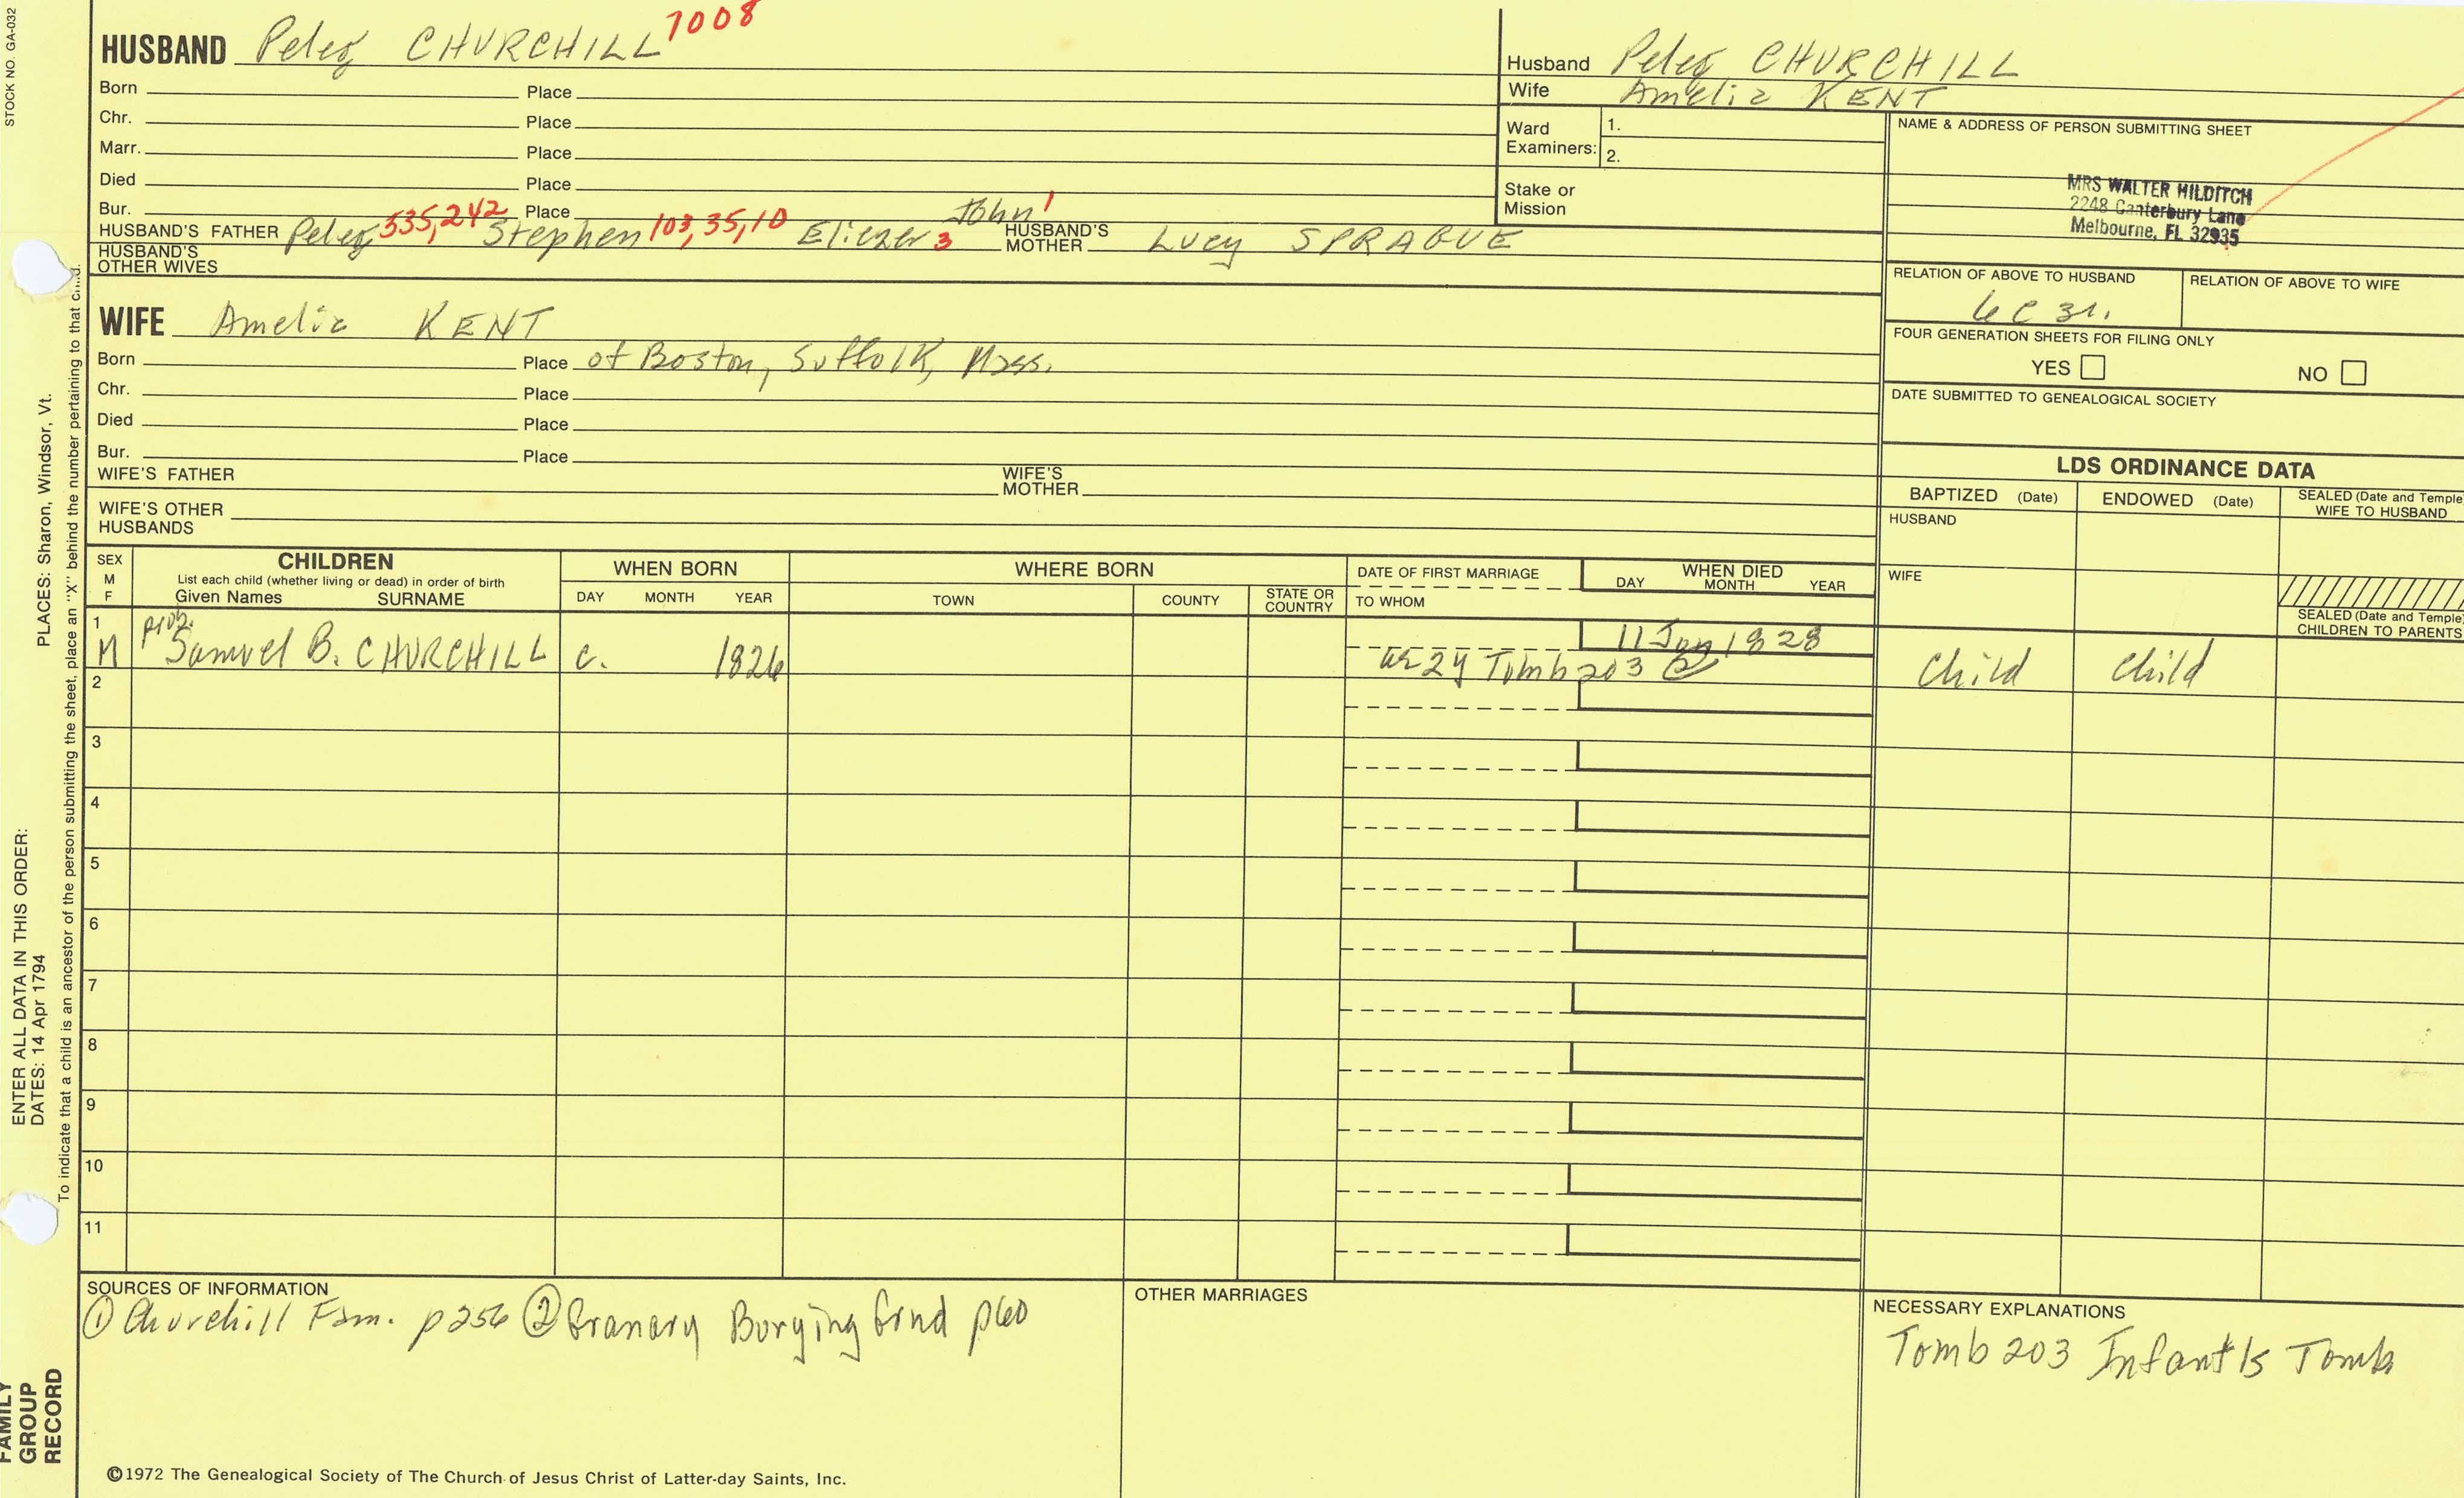 STOCK NO. GA-032
HUSBAND Peleg CHURCHILL 1008
Born Place
Chr. Place
Marr. Place
Died Place
Bur. Place
HUSBAND'S FATHER Peleg 535,242 Stephen 103,35,10 Eliezer 3 John 1 HUSBAND'S MOTHER Lucy SPRAGUE
HUSBAND'S OTHER WIVES
WIFE Amelia KENT
Born Place of Boston, Suffolk, Mass.
Chr. Place
Died Place
Bur. Place
WIFE'S FATHER WIFE'S MOTHER
WIFE'S OTHER HUSBANDS
Husband Peleg CHURCHILL
Wife Amelia KENT
Ward Examiners: 1.
2.
Stake or Mission
NAME & ADDRESS OF PERSON SUBMITTING SHEET
MRS WALTER HILDITCH
2248 Canterbury Lane
Melbourne, FL 32935
RELATION OF ABOVE TO HUSBAND RELATION OF ABOVE TO WIFE
6C 3r.
FOUR GENERATION SHEETS FOR FILING ONLY
YES NO
DATE SUBMITTED TO GENEALOGICAL SOCIETY
LDS ORDINANCE DATA
BAPTIZED (Date) ENDOWED (Date) SEALED (Date and Temple) WIFE TO HUSBAND
HUSBAND
WIFE
SEALED (Date and Temple) CHILDREN TO PARENTS
SEX M F
CHILDREN
List each child (whether living or dead) in order of birth
Given Names SURNAME
WHEN BORN
DAY MONTH YEAR
WHERE BORN
TOWN COUNTY STATE OR COUNTRY
DATE OF FIRST MARRIAGE
TO WHOM
WHEN DIED
DAY MONTH YEAR
1 prob. 11 Jan 1828
M Samuel B. CHURCHILL c. 1826 ae 2y Tomb 203 2 Child Child
2
3
4
5
6
7
8
9
10
11
SOURCES OF INFORMATION
1 Churchill Fam. p256 2 Granary Burying Grnd p60
OTHER MARRIAGES
NECESSARY EXPLANATIONS
Tomb 203 Infant's Tomb
©1972 The Genealogical Society of The Church of Jesus Christ of Latter-day Saints, Inc.
FAMILY GROUP RECORD
ENTER ALL DATA IN THIS ORDER:
DATES: 14 Apr 1794
PLACES: Sharon, Windsor, Vt.
To indicate that a child is an ancestor of the person submitting the sheet, place an "X" behind the number pertaining to that child.